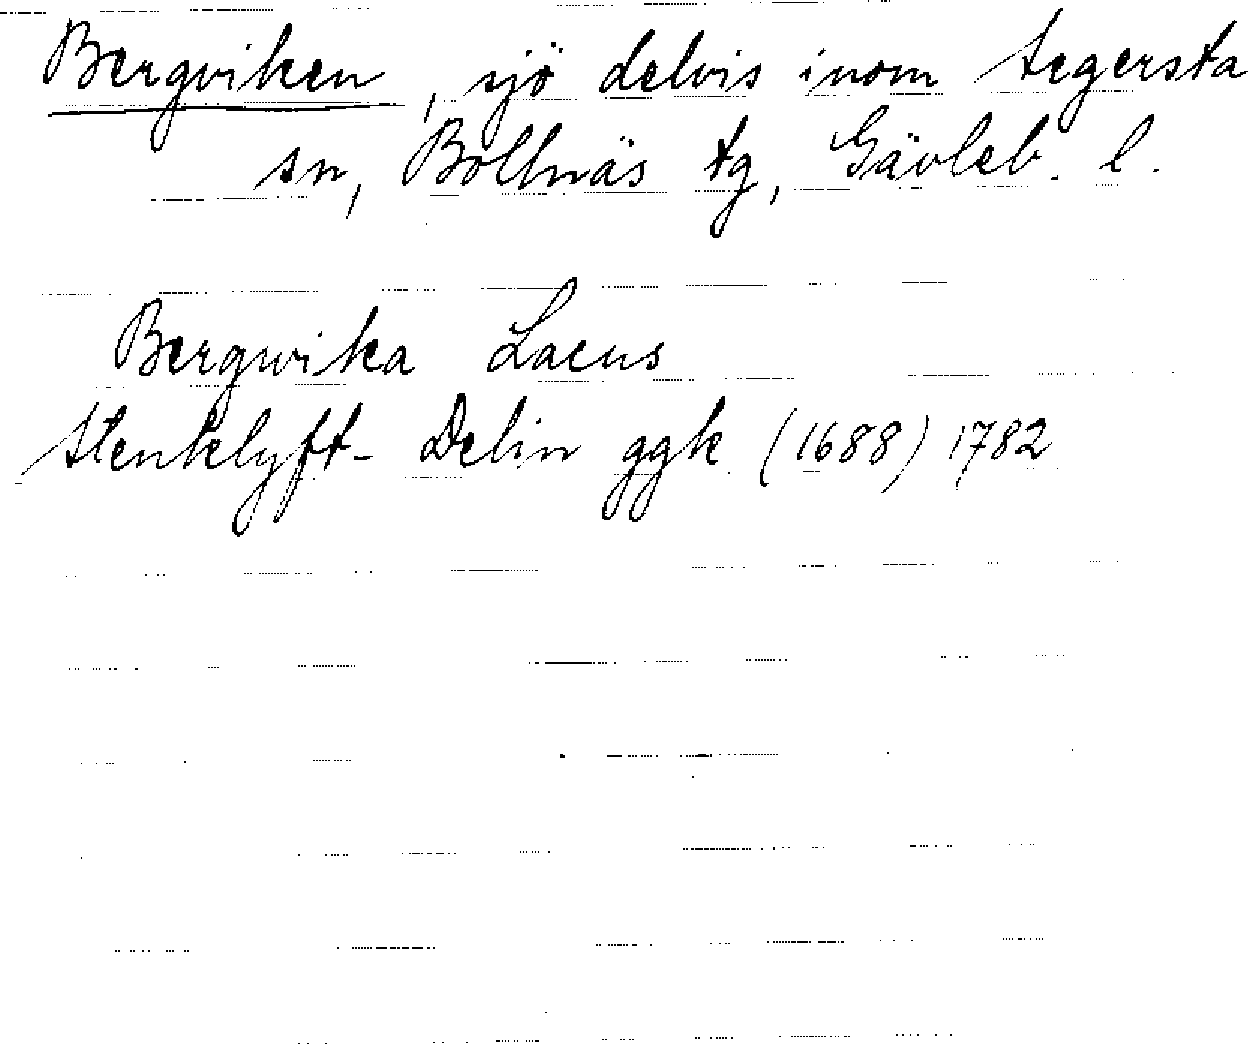 Bergviken, sjö delvis inom Segersta
sn, Bollnäs tg, Gävleb. l.
Bergwika Lacus
Stenklyft- Delin ggk (1688) 1782